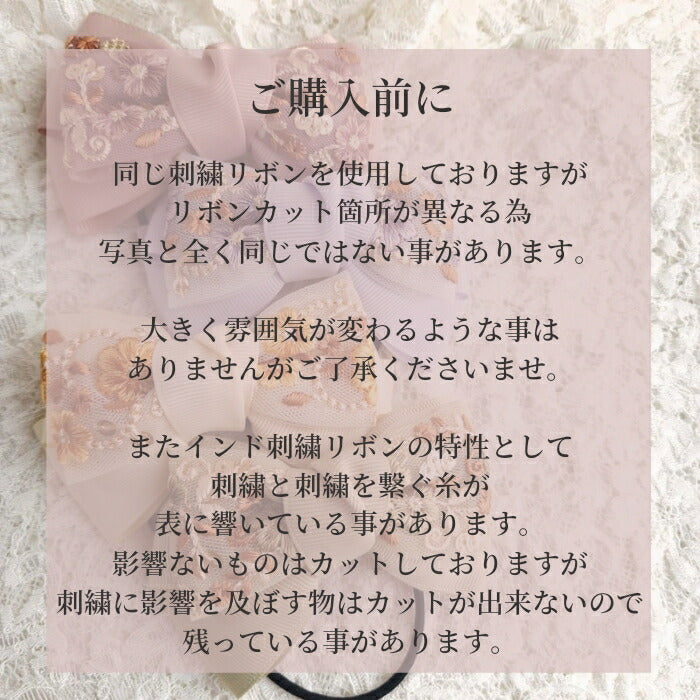 ご購入前に
同じ刺繍リボンを使用しておりますが
リボンカット箇所が異なる為
写真と全く同じではない事があります。
大きく雰囲気が変わるような事は
ありませんがご了承くださいませ。
またインド刺繍リボンの特性として
刺繍と刺繍を繋ぐ糸が
表に響いている事があります。
影響ないものはカットしておりますが
刺繍に影響を及ぼす物はカットが出来ないので
残っている事があります。